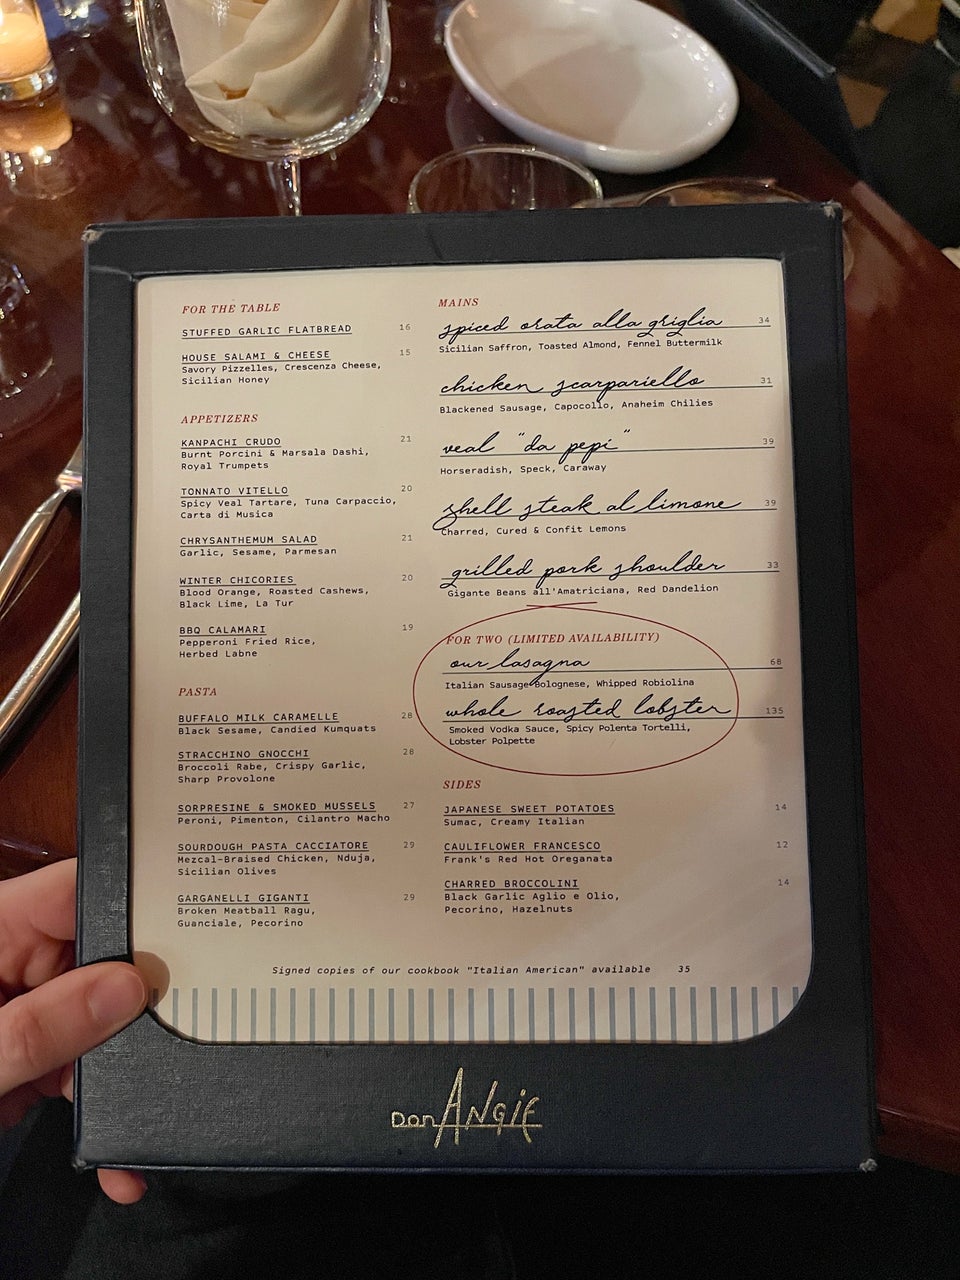 FOR THE TABLE
STUFFED GARLIC FLATBREAD 16
HOUSE SALAMI & CHEESE 15
Savory Pizzelles, Crescenza Cheese,
Sicilian Honey
APPETIZERS
KANPACHI CRUDO 21
Burnt Porcini & Marsala Dashi,
Royal Trumpets
TONNATO VITELLO 20
Spicy Veal Tartare, Tuna Carpaccio,
Carta di Musica
CHRYSANTHEMUM SALAD 21
Garlic, Sesame, Parmesan
WINTER CHICORIES 20
Blood Orange, Roasted Cashews,
Black Lime, La Tur
BBQ CALAMARI 19
Pepperoni Fried Rice,
Herbed Labne
PASTA
BUFFALO MILK CARAMELLE 28
Black Sesame, Candied Kumquats
STRACCHINO GNOCCHI 28
Broccoli Rabe, Crispy Garlic,
Sharp Provolone
SORPRESINE & SMOKED MUSSELS 27
Peroni, Pimenton, Cilantro Macho
SOURDOUGH PASTA CACCIATORE 29
Mezcal-Braised Chicken, Nduja,
Sicilian Olives
GARGANELLI GIGANTI 29
Broken Meatball Ragu,
Guanciale, Pecorino
MAINS
spiced orata alla griglia 34
Sicilian Saffron, Toasted Almond, Fennel Buttermilk
chicken scarpariello 31
Blackened Sausage, Capocollo, Anaheim Chilies
veal "da pepi" 39
Horseradish, Speck, Caraway
shell steak al limone 39
Charred, Cured & Confit Lemons
grilled pork shoulder 33
Gigante Beans all'Amatriciana, Red Dandelion
FOR TWO (LIMITED AVAILABILITY)
our lasagna 68
Italian Sausage Bolognese, Whipped Robiolina
whole roasted lobster 135
Smoked Vodka Sauce, Spicy Polenta Tortelli,
Lobster Polpette
SIDES
JAPANESE SWEET POTATOES 14
Sumac, Creamy Italian
CAULIFLOWER FRANCESCO 12
Frank's Red Hot Oreganata
CHARRED BROCCOLINI 14
Black Garlic Aglio e Olio,
Pecorino, Hazelnuts
Signed copies of our cookbook "Italian American" available 35
Don ANGIE